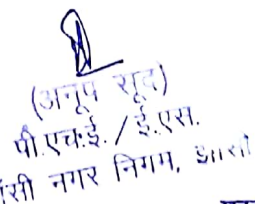 (अनूप सूद)
पी.एच.ई. / ई.एस.
नगर निगम, झाँसी